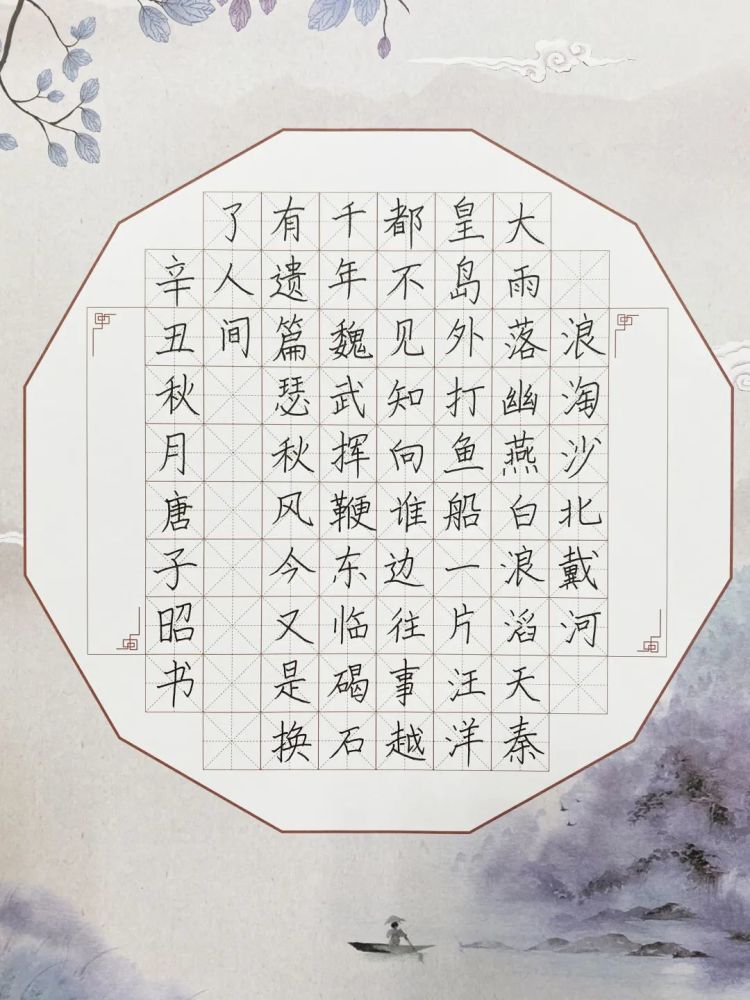 浪淘沙北戴河
大雨落幽燕白浪滔天秦
皇岛外打鱼船一片汪洋
都不见知向谁边往事越
千年魏武挥鞭东临碣石
有遗篇瑟秋风今又是换
了人间
辛丑秋月唐子昭书